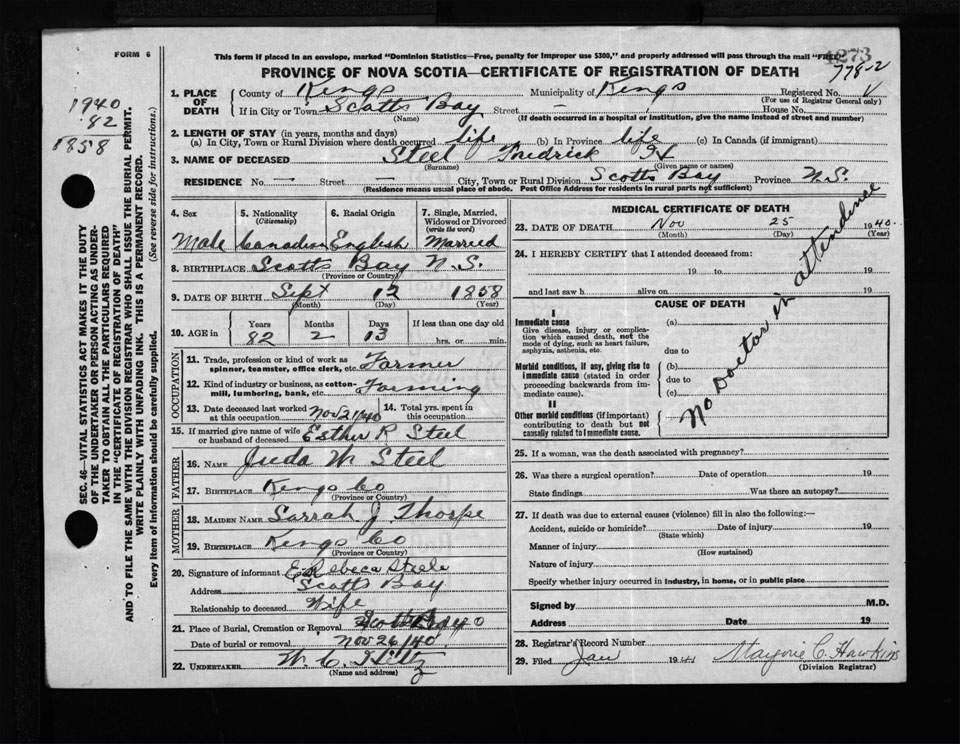 FORM 6
This form if placed in an envelope, marked "Dominion Statistics—Free, penalty for improper use $300," and properly addressed will pass through the mail "FREE"
4273
778-2
PROVINCE OF NOVA SCOTIA—CERTIFICATE OF REGISTRATION OF DEATH
1940
82
1858
SEC. 46—VITAL STATISTICS ACT MAKES IT THE DUTY
OF THE UNDERTAKER OR PERSON ACTING AS UNDER-
TAKER TO OBTAIN ALL THE PARTICULARS REQUIRED
IN THE "CERTIFICATE OF REGISTRATION OF DEATH"
AND TO FILE THE SAME WITH THE DIVISION REGISTRAR WHO SHALL ISSUE THE BURIAL PERMIT.
WRITE PLAINLY WITH UNFADING INK. THIS IS A PERMANENT RECORD.
Every item of information should be carefully supplied. (See reverse side for instructions.)
1. PLACE OF DEATH County of Kings Municipality of Kings Registered No. V
(For use of Registrar General only)
If in City or Town Scotts Bay Street — House No.
(Name) (If death occurred in a hospital or institution, give the name instead of street and number)
2. LENGTH OF STAY (in years, months and days)
(a) In City, Town or Rural Division where death occurred life (b) In Province life (c) In Canada (if immigrant)
3. NAME OF DECEASED Steel Fredrick
(Surname) (Given name or names)
RESIDENCE No. — Street — City, Town or Rural Division Scotts Bay Province N.S.
(Residence means usual place of abode. Post Office Address for residents in rural parts not sufficient)
4. Sex Male
5. Nationality (Citizenship) Canadian
6. Racial Origin English
7. Single, Married, Widowed or Divorced (write the word) Married
8. BIRTHPLACE Scotts Bay N.S.
(Province or Country)
9. DATE OF BIRTH Sept 12 1858
(Month) (Day) (Year)
10. AGE in Years 82 Months 2 Days 13 If less than one day old hrs. or min.
OCCUPATION
11. Trade, profession or kind of work as spinner, teamster, office clerk, etc. Farmer
12. Kind of industry or business, as cotton-mill, lumbering, bank, etc. Farming
13. Date deceased last worked at this occupation Nov 21/40
14. Total yrs. spent in this occupation
15. If married give name of wife or husband of deceased Esther R Steel
FATHER
16. NAME Juda W Steel
17. BIRTHPLACE Kings Co
(Province or Country)
MOTHER
18. MAIDEN NAME Sarrah J Thorpe
19. BIRTHPLACE Kings Co
(Province or Country)
20. Signature of informant E Rebeca Steele
Address Scotts Bay
Relationship to deceased Wife
21. Place of Burial, Cremation or Removal Scotts Bay
Date of burial or removal Nov 26/40
22. UNDERTAKER W. C. Hiltz
(Name and address)
MEDICAL CERTIFICATE OF DEATH
23. DATE OF DEATH Nov 25 1940.
(Month) (Day) (Year)
24. I HEREBY CERTIFY that I attended deceased from:
19 to 19
and last saw h alive on 19
CAUSE OF DEATH
I
Immediate cause (a)
Give disease, injury or complication which caused death, not the mode of dying, such as heart failure, asphyxia, asthenia, etc.
due to
Morbid conditions, if any, giving rise to immediate cause (stated in order proceeding backwards from immediate cause).
(b)
due to
(c)
II
Other morbid conditions (if important) contributing to death but not causally related to immediate cause.
No Doctor in attendence
25. If a woman, was the death associated with pregnancy?
26. Was there a surgical operation? Date of operation 19
State findings Was there an autopsy?
27. If death was due to external causes (violence) fill in also the following:—
Accident, suicide or homicide? Date of injury 19
(State which)
Manner of injury
(How sustained)
Nature of injury
Specify whether injury occurred in industry, in home, or in public place
Signed by M.D.
Address Date 19
28. Registrar's Record Number
29. Filed Jan 1941 Marjorie C. Hawkins
(Division Registrar)